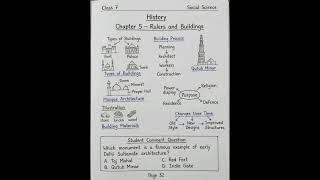 Class 7 Social Science
History
Chapter 5 – Rulers and Buildings
Types of Buildings
Fort Palace
Tomb
Types of Buildings
Building Process
Planning
Architect
Workers
Construction
Qutub Minar
Minaret
Dome
Prayer Hall
Mosque Architecture
Power display
Religion
Purpose
Residence
Defence
Illustration
stone bricks wood
Building Materials
Changes Over Time
Old Style
New Designs
Improved Structures
Student Comment Question
Which monument is a famous example of early
Delhi Sultanate architecture?
A. Taj Mahal C. Red Fort
B. Qutub Minar D. India Gate
Page 32